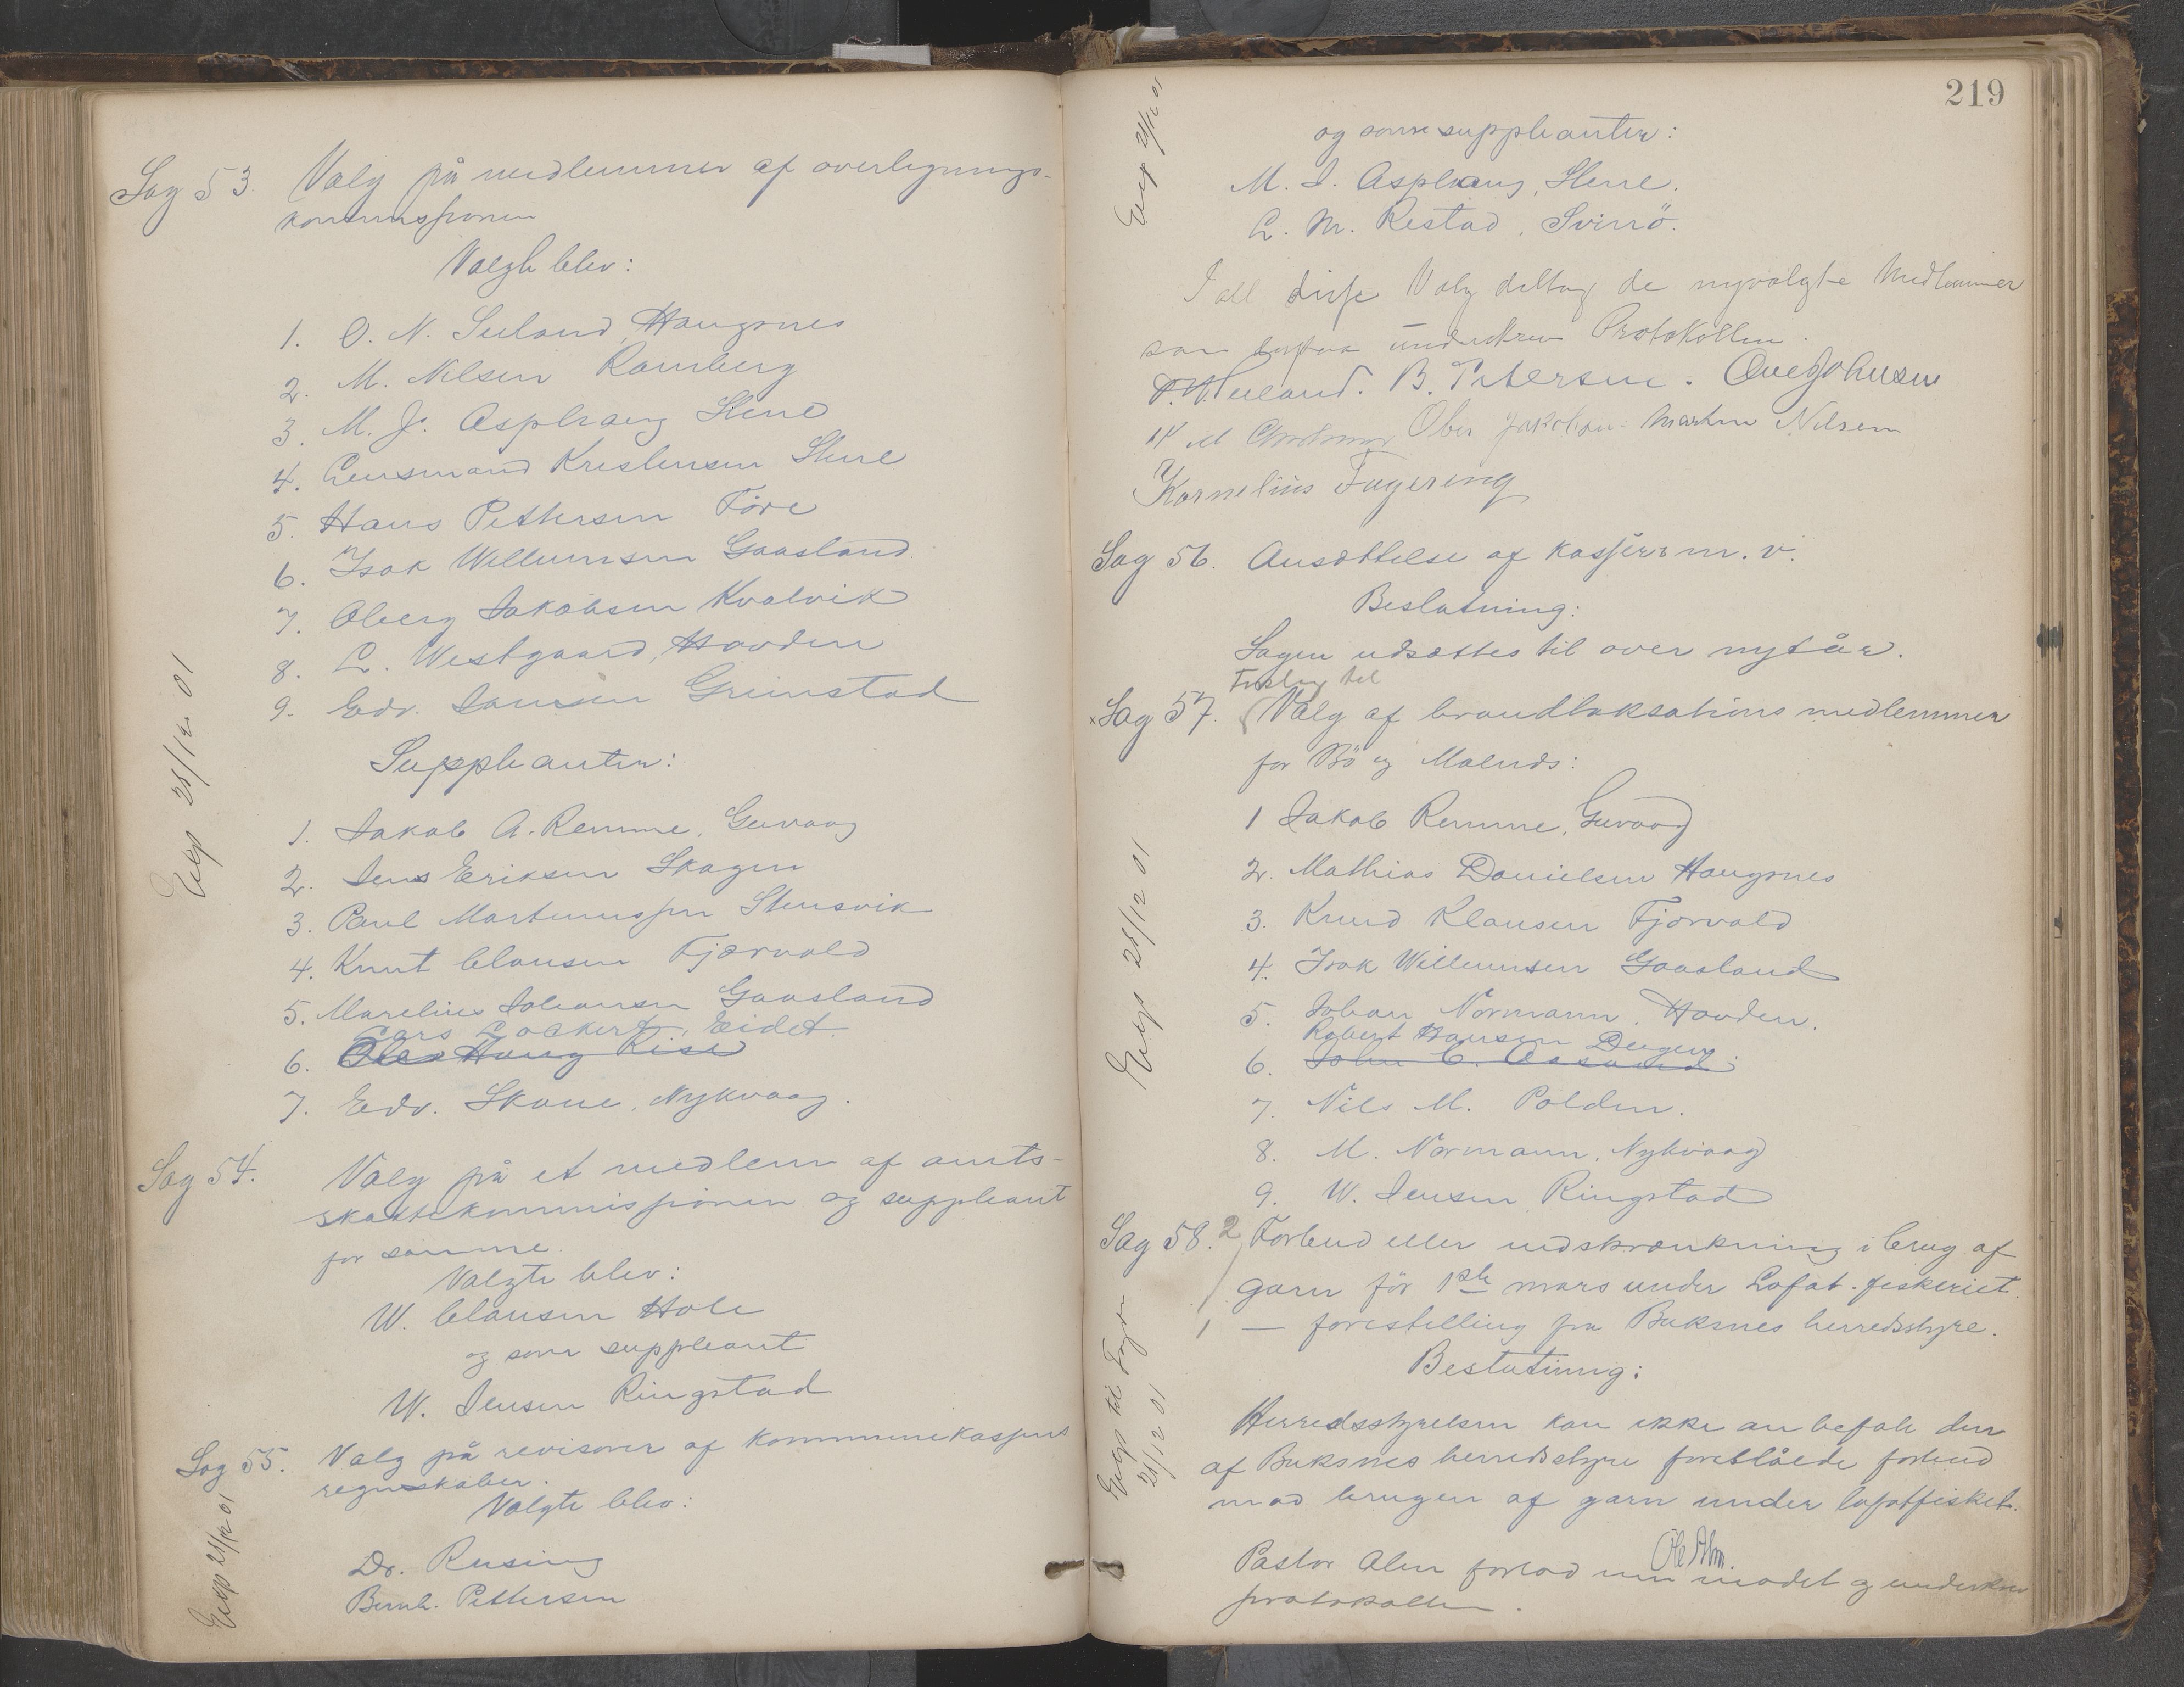 Sag 53. Valg på medlemmer af overlignings-
kommissionen
Valgte blev:
1. O. N. Seeland, Haugsnes
2. M. Nilsen Ramberg
3. M. J. Asphaug Stene
4. Lensmand Kristensen Stene
5. Hans Pettersen Före
6. Isak Willumsen Gaasland
7. Oberg Jakobsen Kvalvik
8. L. Westgaard, Hovden
9. Edv. Jansen Grimstad
Suppleanter:
1. Jakob A. Remme, Guvaag
2. Jens Eriksen Skagen
3. Paul Martinussen Steinsvik
4. Knut Clausen Fjærvold
5. Marelius Johansen Gaasland
Lars Lockert, Eidet
6. Ole Haug Rise
7. Edv. Skaue, Nykvaag.
Exp 28/12 01
Sag 54. Valg på et medlem af amts-
skattekommissionen og suppleant
for samme.
Valgte blev:
W. Clausen Hole
og som suppleant
W. Jensen Ringstad
Sag 55. Valg på revisorer af kommunekassens
regnskaber.
Valgte blev:
Dr. Rusing
Bernh. Pettersen
Exp 28/12 01
219
Exp 28/12 01
og som suppleanter:
M. J. Asphaug, Stene.
L. M. Restad, Svinö.
I all disse Valg deltog de nyvalgte Medlemmer
som underskrev Protokollen.
O. N. Seeland. B. Petersen. Ove Johnsen
Ober Jakobsen Martin Nilsen
Kornelius Fagereng
Sag 56. Ansættelse af kasserer m. v.
Beslutning:
Sagen udsættes til over nytår.
Forslag til
x Sag 57. Valg af brandtaksations medlemmer
for Bö og Malnes:
1 Jakob Remme, Guvaag
2. Mathias Danielsen Haugsnes
3. Knud Klausen Fjærvold
4. Isak Willumsen Gaasland
5. Johan Normann, Hovden.
Robert Hansen
6. John C. Aasand
7. Nils M. Polden.
8. M. Normann, Nykvaag
9. W. Jensen Ringstad
Exp 28/12 01
Sag 58. 2 Forbud eller indskrænkning i brug af
garn för 1ste mars under Lofot-fiskeriet.
1 — forestilling fra Buksnes herredsstyre.
Beslutning:
Herredsstyrelsen kan ikke anbefale den
af Buksnes herredsstyre foreslåede forbud
mod brugen af garn under lofotfisket.
Exp til Fogden
28/12 01
Ole Alm.
Pastor Alm forlod nu mødet og underskrev
protokollen.